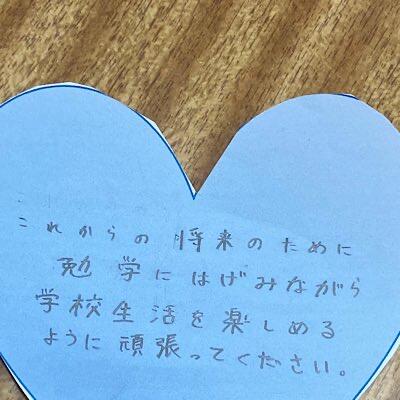 これからの将来のために
勉学にはげみながら
学校生活を楽しめる
ように頑張ってください。